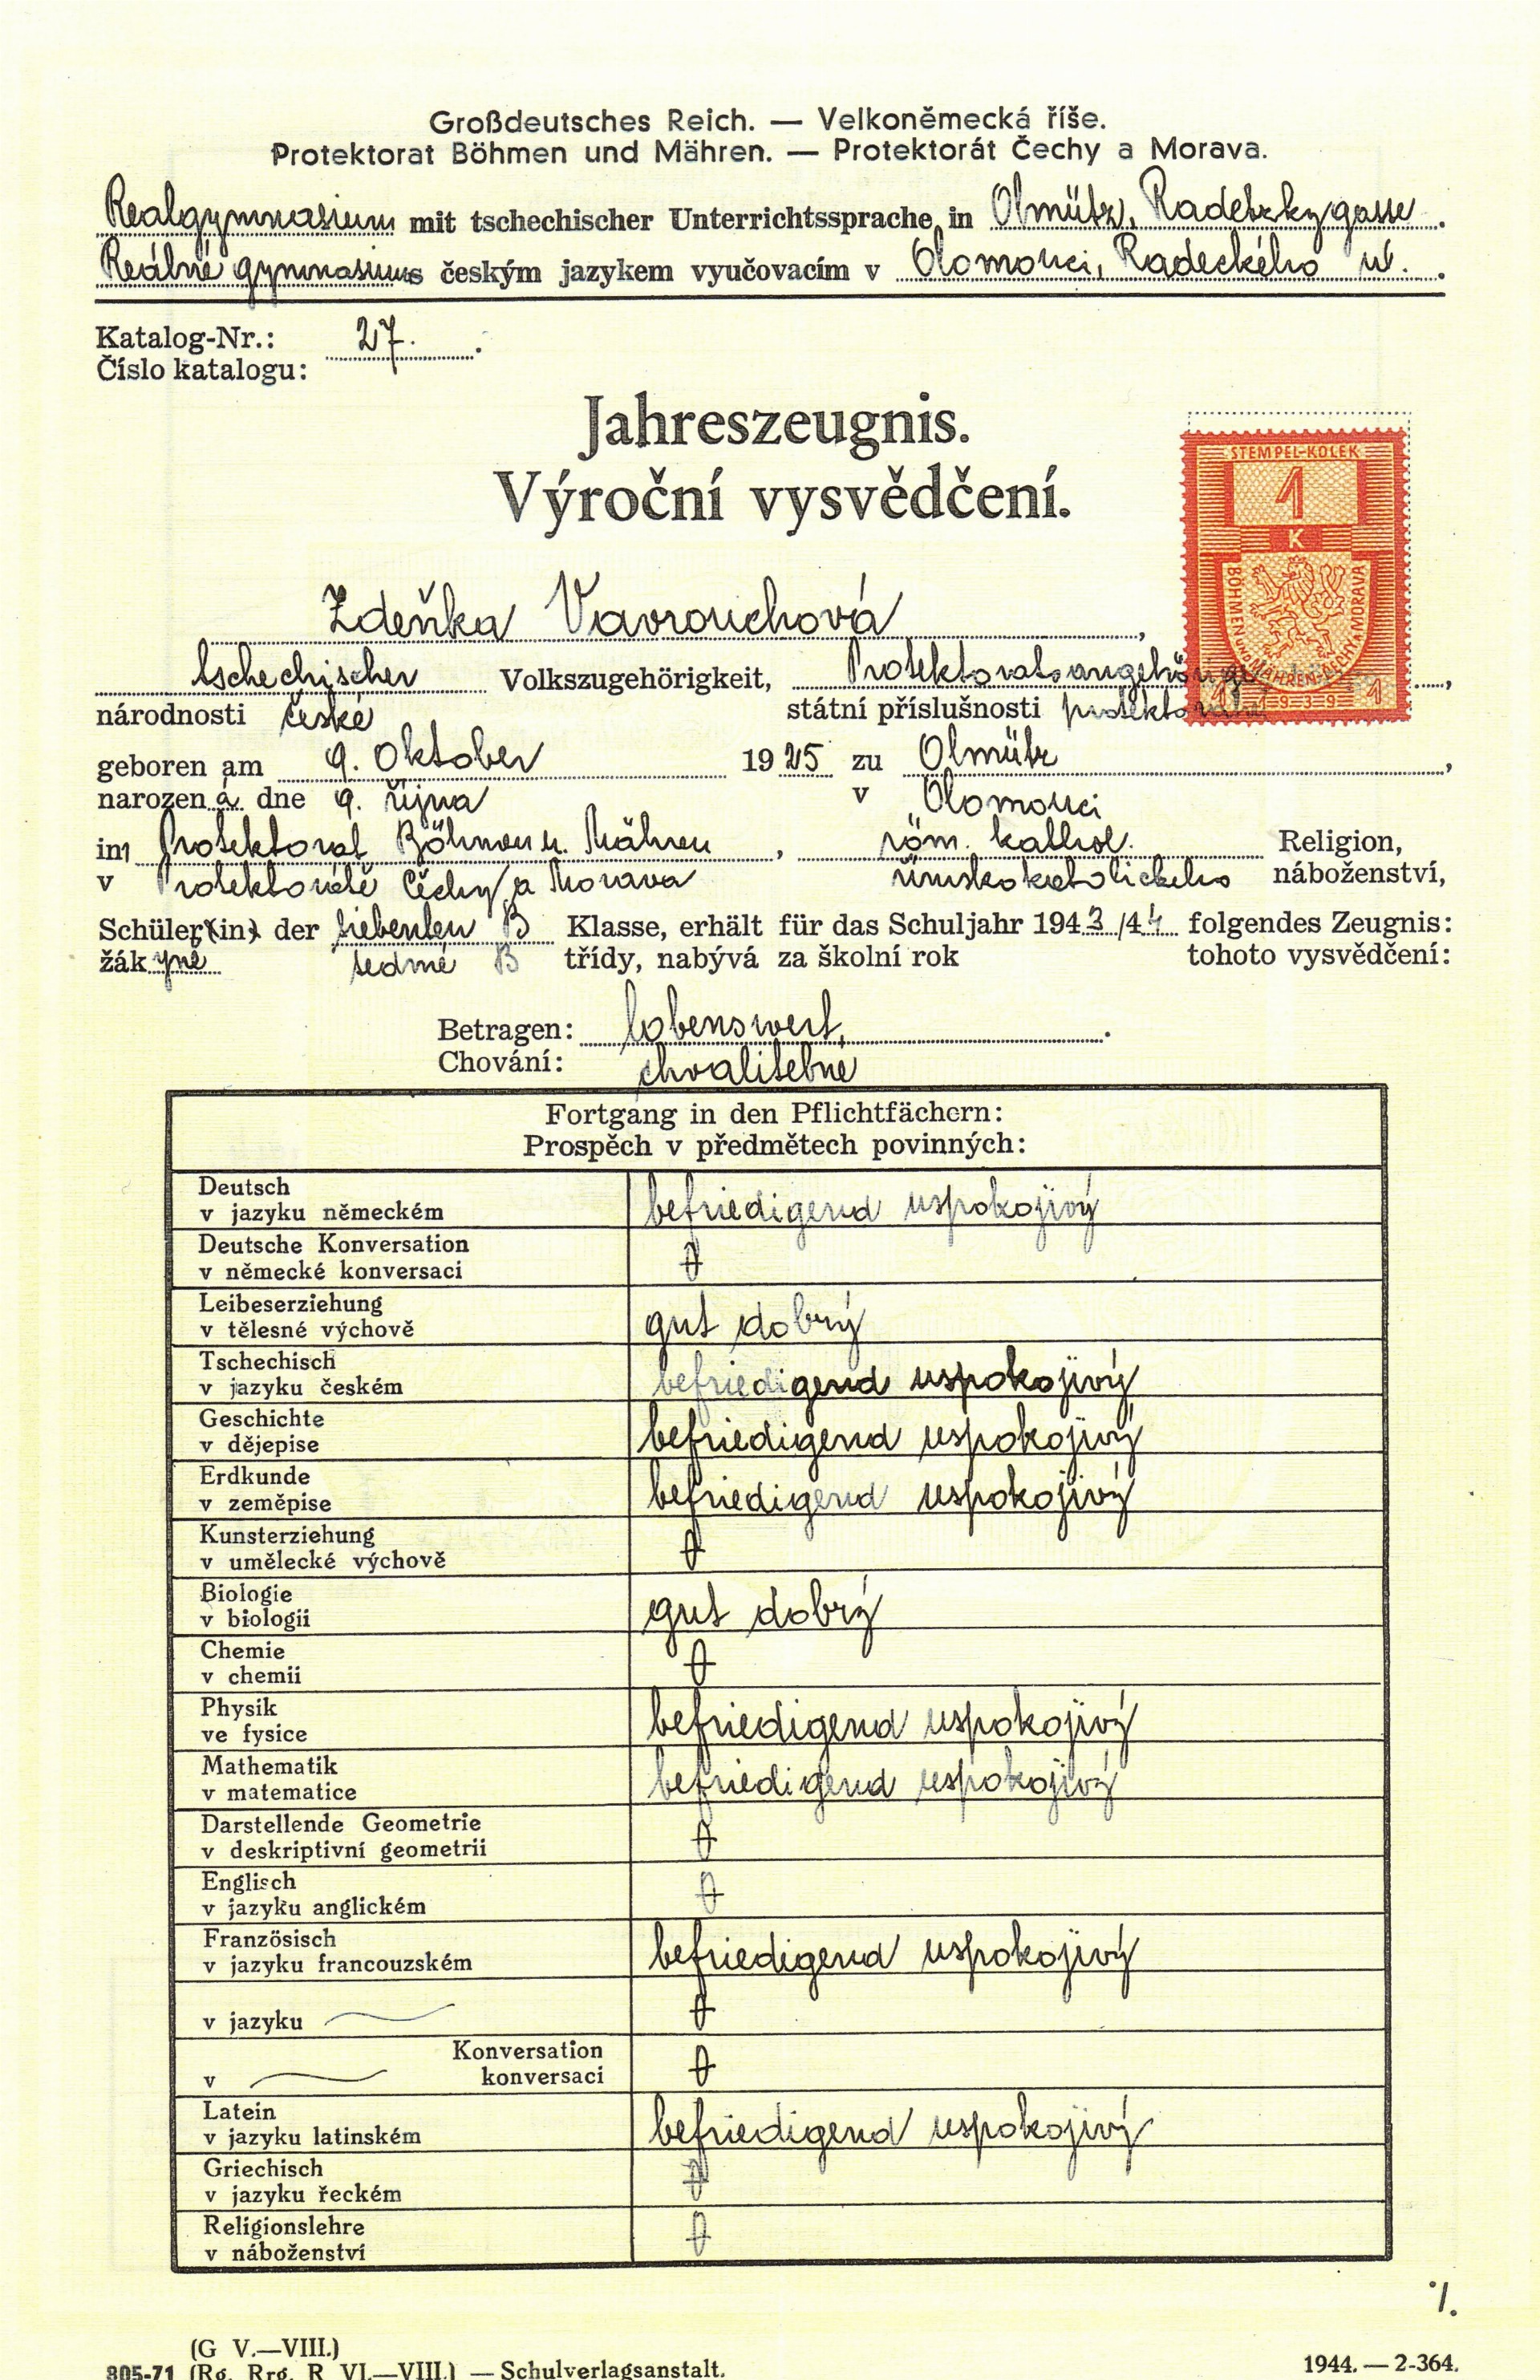 Großdeutsches Reich. — Velkoněmecká říše.
Protektorat Böhmen und Mähren. — Protektorát Čechy a Morava.
Realgymnasium mit tschechischer Unterrichtssprache in Olmütz, Radetzkygasse.
Reálné gymnasium s českým jazykem vyučovacím v Olomouci, Radeckého ul.
Katalog-Nr.: 27.
Číslo katalogu:
Jahreszeugnis.
Výroční vysvědčení.
STEMPEL-KOLEK
1
K
BÖHMEN UND MÄHREN-ČECHY A MORAVA
1 1939 1
Zdeňka Vavrouchová,
tschechischer Volkszugehörigkeit, Protektoratsangehörige,
národnosti české státní příslušnosti
geboren am 9. Oktober 1925 zu Olmütz,
narozená dne 9. října v Olomouci
in Protektorat Böhmen u. Mähren, röm. kathol. Religion,
v Protektorátě Čechy a Morava římskokatolického náboženství,
Schüler(in) der siebenten B Klasse, erhält für das Schuljahr 1943/44 folgendes Zeugnis:
žákyně sedmé B třídy, nabývá za školní rok tohoto vysvědčení:
Betragen: lobenswert.
Chování: chvalitebné
Fortgang in den Pflichtfächern:
Prospěch v předmětech povinných:
Deutsch
v jazyku německém befriedigend uspokojivý
Deutsche Konversation
v německé konversaci
Leibeserziehung
v tělesné výchově gut dobrý
Tschechisch
v jazyku českém befriedigend uspokojivý
Geschichte
v dějepise befriedigend uspokojivý
Erdkunde
v zeměpise befriedigend uspokojivý
Kunsterziehung
v umělecké výchově
Biologie
v biologii gut dobrý
Chemie
v chemii
Physik
ve fysice befriedigend uspokojivý
Mathematik
v matematice befriedigend uspokojivý
Darstellende Geometrie
v deskriptivní geometrii
Englisch
v jazyku anglickém
Französisch
v jazyku francouzském befriedigend uspokojivý
v jazyku
Konversation
v konversaci
Latein
v jazyku latinském befriedigend uspokojivý
Griechisch
v jazyku řeckém
Religionslehre
v náboženství
./.
(G V.—VIII.)
805-71 (Rg. Rrg. R VI.—VIII.) — Schulverlagsanstalt. 1944. — 2-364.